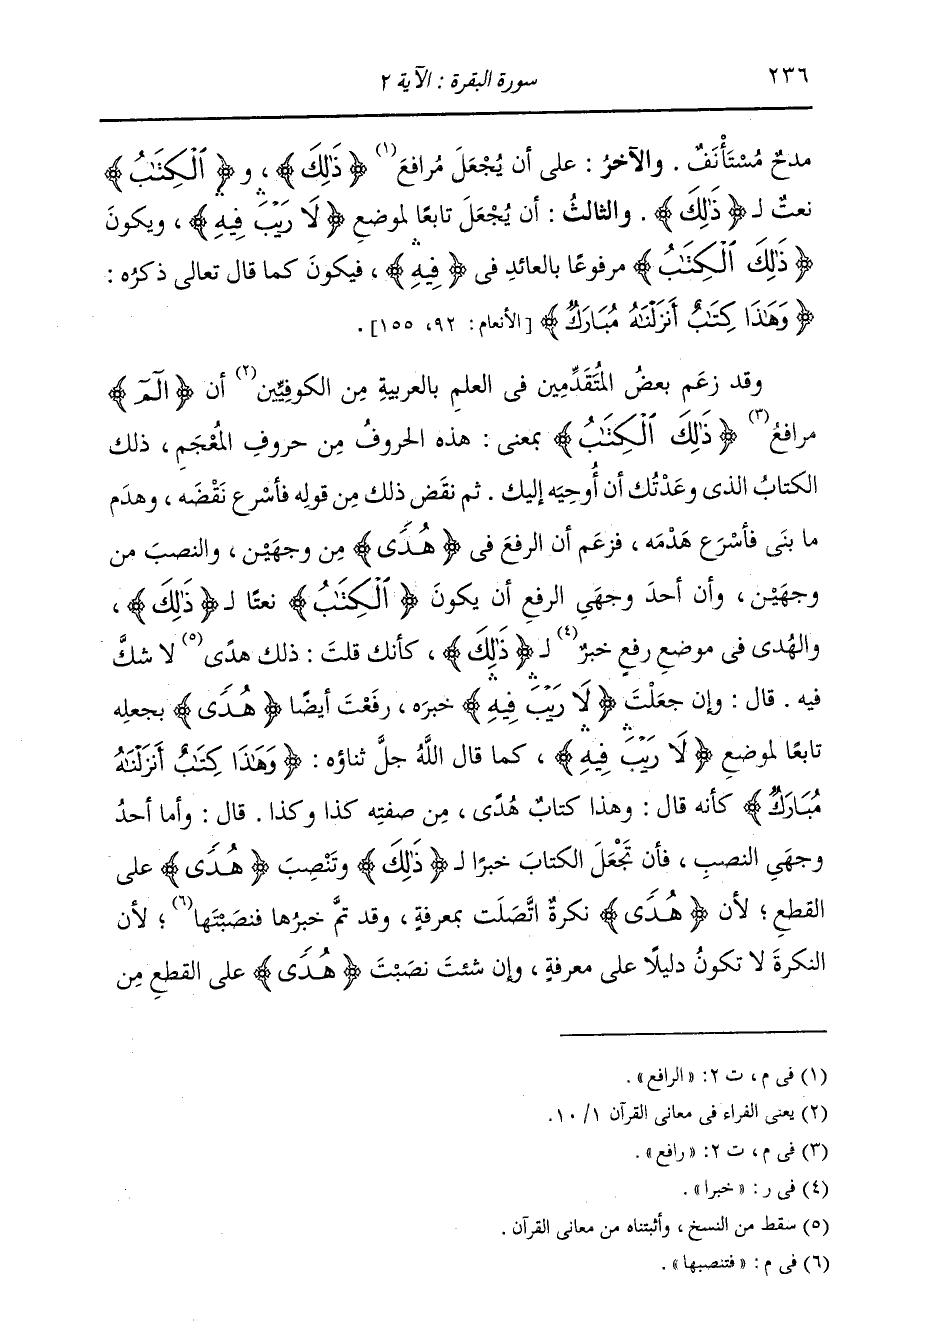 ٢٣٦ سورة البقرة : الآية ٢
مدحٌ مُسْتَأْنَفٌ . والآخرُ : على أن يُجْعَلَ مُرافعَ(١) ﴿ ذَٰلِكَ ﴾ ، و ﴿ ٱلْكِتَٰبُ ﴾
نعتٌ لـ ﴿ ذَٰلِكَ ﴾ . والثالثُ : أن يُجْعَلَ تابعًا لموضعِ ﴿ لَا رَيْبَۛ فِيهِۛ ﴾ ، ويكونَ
﴿ ذَٰلِكَ ٱلْكِتَٰبُ ﴾ مرفوعًا بالعائدِ فى ﴿ فِيهِۛ ﴾ ، فيكونَ كما قال تعالى ذكرُه :
﴿ وَهَٰذَا كِتَٰبٌ أَنزَلْنَٰهُ مُبَارَكٌ ﴾ [الأنعام: ٩٢، ١٥٥] .
وقد زعَم بعضُ المُتَقَدِّمِين فى العلمِ بالعربيةِ مِن الكوفيِّين(٢) أن ﴿ الٓمٓ ﴾
مرافعُ(٣) ﴿ ذَٰلِكَ ٱلْكِتَٰبُ ﴾ بمعنى : هذه الحروفُ مِن حروفِ المُعْجَمِ ، ذلك
الكتابُ الذى وعَدْتُك أن أُوحِيَه إليك . ثم نقَض ذلك مِن قولِه فأسْرع نَقْضَه ، وهدَم
ما بنَى فأسْرَع هَدْمَه ، فزعَم أن الرفعَ فى ﴿ هُدًى ﴾ مِن وجهَيْن ، والنصبَ من
وجهَيْن ، وأن أحدَ وجهَىِ الرفعِ أن يكونَ ﴿ ٱلْكِتَٰبُ ﴾ نعتًا لـ ﴿ ذَٰلِكَ ﴾ ،
والهُدى فى موضعِ رفعٍ خبرٌ(٤) لـ ﴿ ذَٰلِكَ ﴾ ، كأنك قلتَ : ذلك هدًى(٥) لا شكَّ
فيه . قال : وإن جعَلْتَ ﴿ لَا رَيْبَۛ فِيهِۛ ﴾ خبرَه ، رفَعْتَ أيضًا ﴿ هُدًى ﴾ بجعلِه
تابعًا لموضعِ ﴿ لَا رَيْبَۛ فِيهِۛ ﴾ ، كما قال اللَّهُ جلَّ ثناؤه : ﴿ وَهَٰذَا كِتَٰبٌ أَنزَلْنَٰهُ
مُبَارَكٌ ﴾ كأنه قال : وهذا كتابٌ هُدًى ، مِن صفتِه كذا وكذا . قال : وأما أحدُ
وجهَىِ النصبِ ، فأن تَجْعَلَ الكتابَ خبرًا لـ ﴿ ذَٰلِكَ ﴾ وتَنْصِبَ ﴿ هُدًى ﴾ على
القطعِ ؛ لأن ﴿ هُدًى ﴾ نكرةٌ اتَّصَلَت بمعرفةٍ ، وقد تمَّ خبرُها فنصَبْتَها(٦) ؛ لأن
النكرةَ لا تكونُ دليلًا على معرفةٍ ، وإن شئتَ نصَبْتَ ﴿ هُدًى ﴾ على القطعِ مِن
(١) فى م ، ت ٢: «الرافع» .
(٢) يعنى الفراء فى معانى القرآن ١/ ١٠.
(٣) فى م، ت ٢: «رافع» .
(٤) فى ر : «خبرا» .
(٥) سقط من النسخ ، وأثبتناه من معانى القرآن .
(٦) فى م : «فتنصبها» .